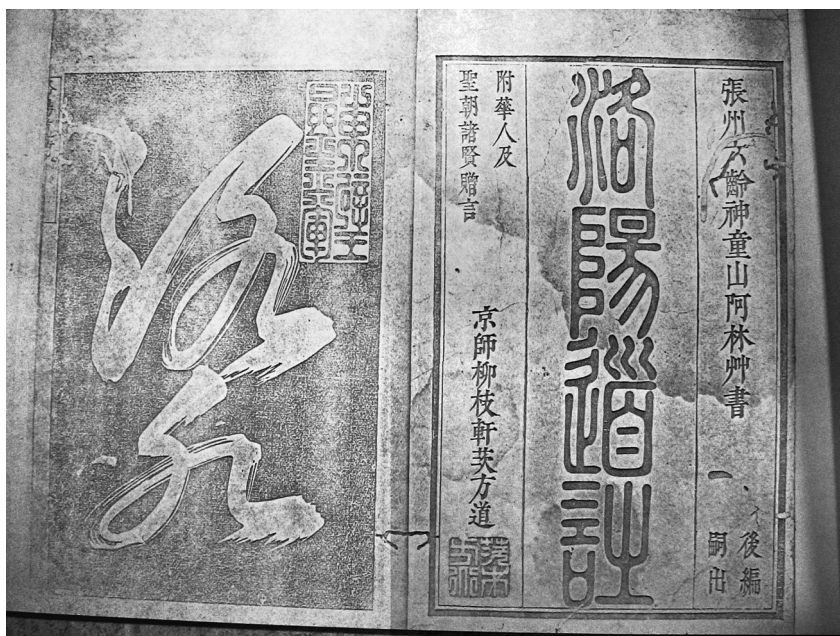 張州六齡神童山阿林艸書
後編
嗣出
洛陽道詩
附華人及
聖朝諸賢贈言
京師柳枝軒茨方道